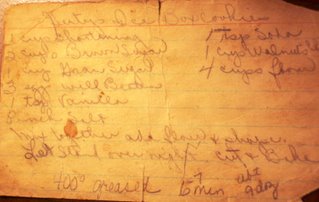 Ice Box Cookies
1 cup shortening 1 tsp Soda
2 cups Brown Sugar 1 cup Walnuts
1 cup Sugar 4 cups flour
3 eggs well Beaten
1 tsp Vanilla
Pinch Salt
Mix together add flour & shape.
Let Stand over night Cut & Bake
400° greased 6 7 min